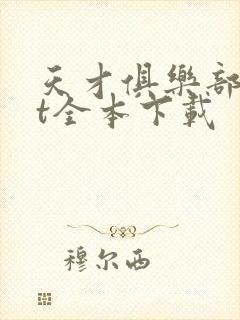 天才俱樂部
t全本下載
穆尔西